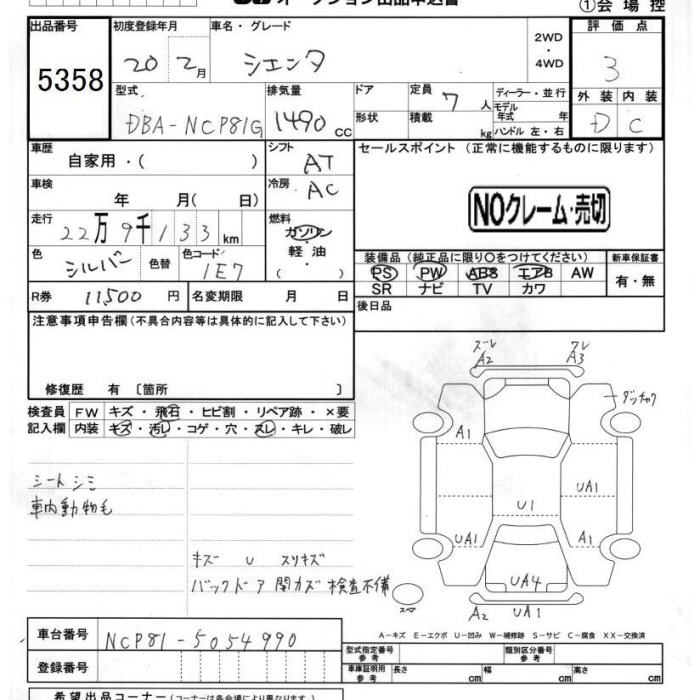 オークション出品申込書
①会場控
出品番号 初度登録年月 車名・グレード 2WD ・ 4WD 評価点
5358 20 2月 シエンタ 3
型式 排気量 ドア 定員 7人 ディーラー・並行 外装 内装
DBA-NCP81G 1490 cc 形状 積載 kg モデル年式 年 ハンドル 左・右 D C
車歴 自家用・( ) シフト AT セールスポイント (正常に機能するものに限ります)
車検 年 月( 日) 冷房 AC
NOクレーム・売切
走行 22万9千133km 燃料 ガソリン・軽油・( )
色 シルバー 色替 色コード 1E7
装備品 (純正品に限り○をつけてください) 新車保証書
PS PW ABS エアB AW 有・無
SR ナビ TV カワ
R券 11,500円 名変期限 月 日 後日品
注意事項申告欄 (不具合内容等は具体的に記入して下さい)
修復歴 有 〔箇所 〕
検査員 FW キズ・飛石・ヒビ割・リペア跡・×要
記入欄 内装 キズ・汚レ・コゲ・穴・スレ・キレ・破レ
ズレ ワレ
A2 A3
ダッチャク
A1
UA1
U1
UA1 A1
UA4
スペア A2 UA1
シートシミ
車内動物毛
キズ U スリキズ
バックドア開カズ 検査不備
A-キズ E-エクボ U-凹み W-補修跡 S-サビ C-腐食 XX-交換済
車台番号 NCP81-5054990
型式指定番号 参考 類別区分番号 参考
登録番号 車庫証明用 参考 長さ cm 幅 cm 高さ cm
希望出品コーナー (コーナーは各会場により異なります。